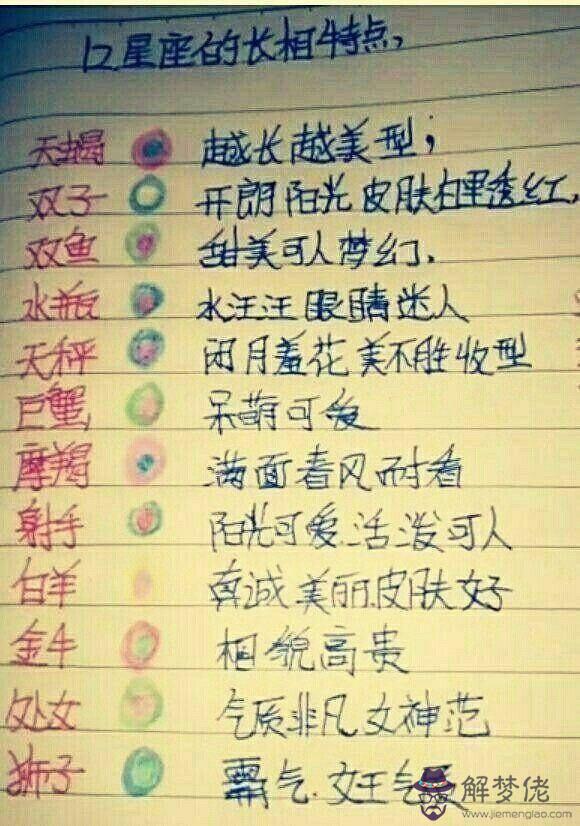 12星座的长相特点,
天蝎 越长越美型;
双子 开朗阳光皮肤白里透红,
双鱼 甜美可人梦幻.
水瓶 水汪汪眼睛迷人
天秤 闭月羞花美不胜收型
巨蟹 呆萌可爱
摩羯 满面春风耐看
射手 阳光可爱.活泼可人
白羊 真诚美丽.皮肤好
金牛 相貌高贵
处女 气质非凡女神范
狮子 霸气.女王气
解梦佬
www.jiemenglao.com